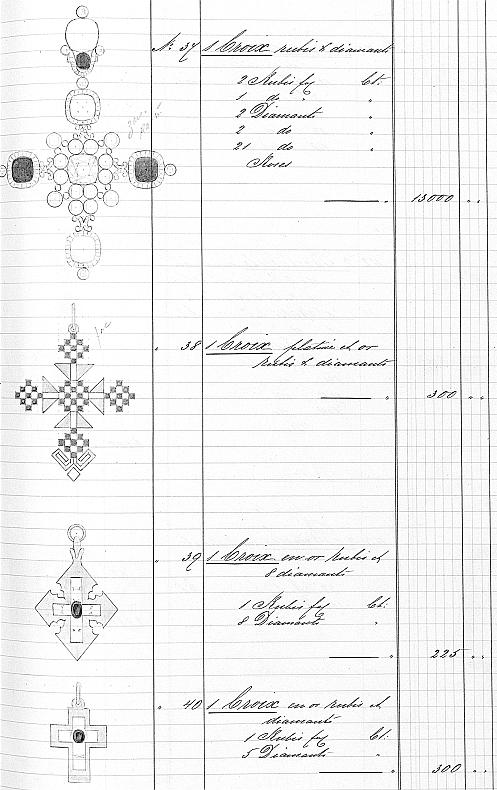 N: 37 1 Croix rubis & diamants
2 Rubis Ct.
1 do " "
2 Diamants "
2 do "
21 do "
Roses
" 13000 " "
" 38 1 Croix platine et or
rubis & diamants
" 300 " "
" 39 1 Croix en or rubis et
8 diamants
1 Rubis Ct.
8 Diamants "
" 225 " "
" 40 1 Croix en or rubis et
diamants
1 Rubis Ct.
5 Diamants "
" 300 " "